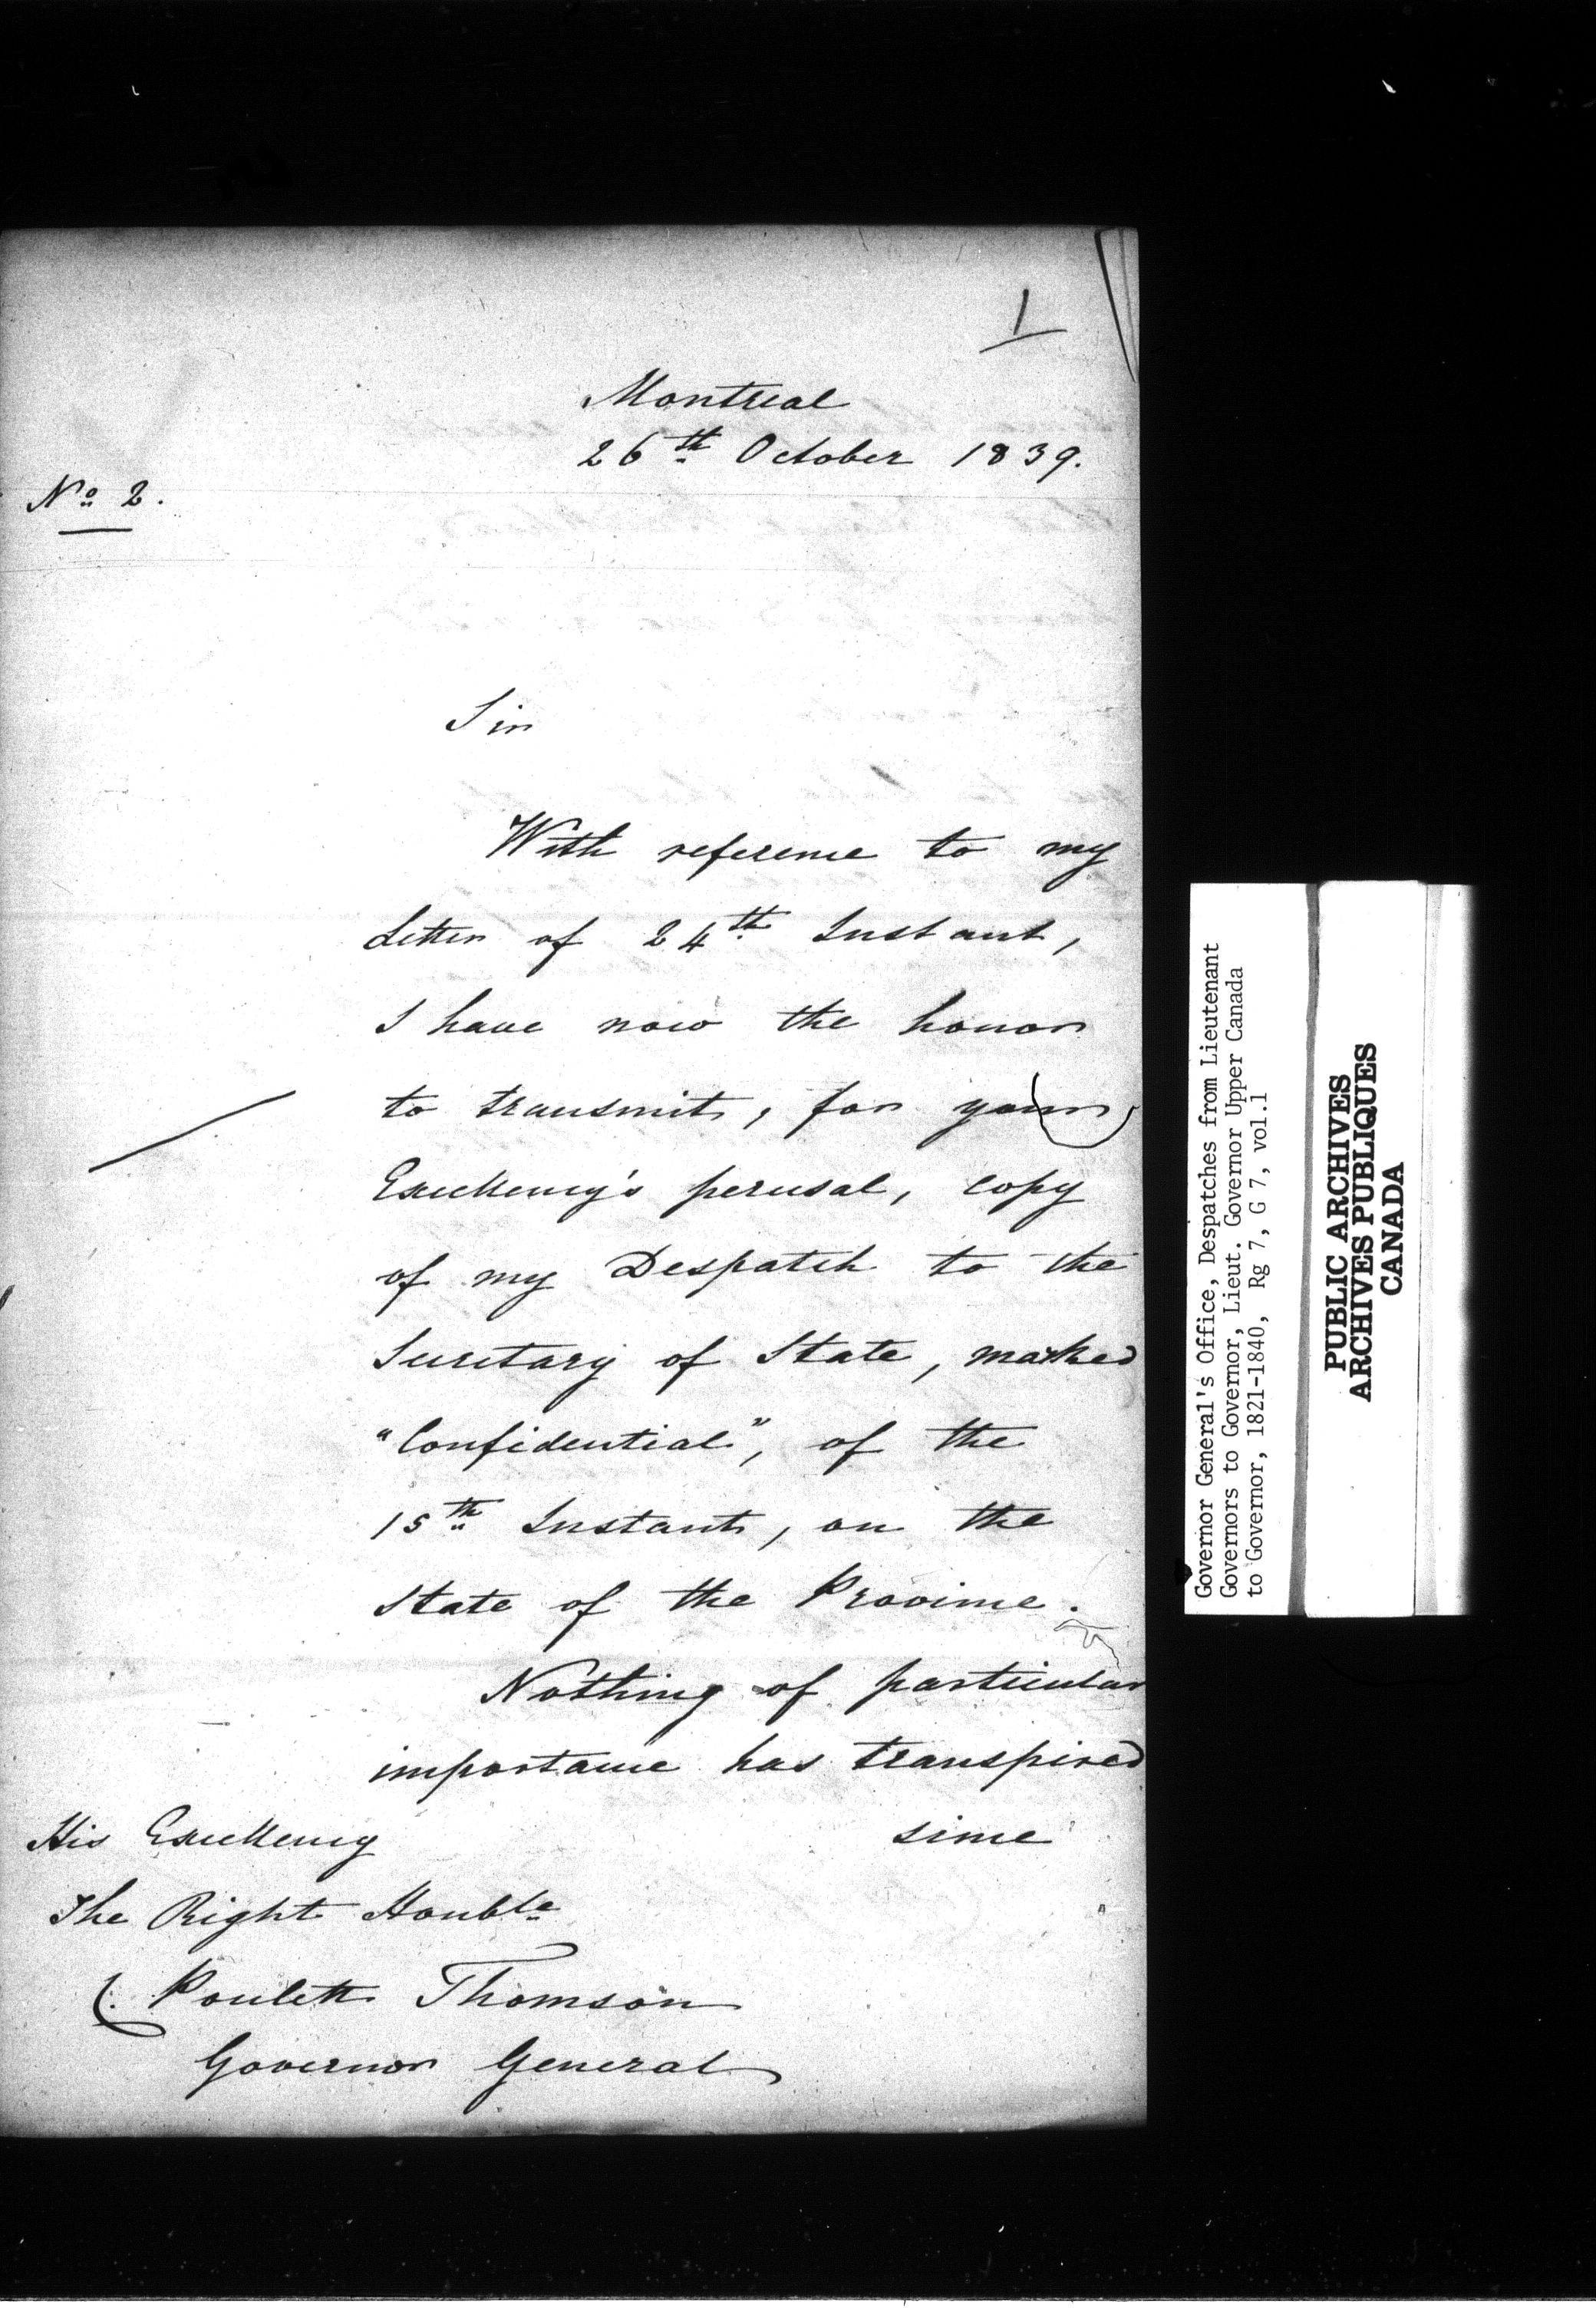 1
Montreal
26th October 1839.
No 2.
Sir
With reference to my
Letter of 24th Instant,
I have now the honor
to transmit, for your
Excellency's perusal, copy
of my Despatch to the
Secretary of State, marked
"Confidential", of the
15th Instant, on the
State of the Province.
Nothing of particular
importance has transpired
since
His Excellency
The Right Honble
C. Poulett Thomson
Governor General
Governor General's Office, Despatches from Lieutenant
Governors to Governor, Lieut. Governor Upper Canada
to Governor, 1821-1840, Rg 7, G 7, vol.1
PUBLIC ARCHIVES
ARCHIVES PUBLIQUES
CANADA